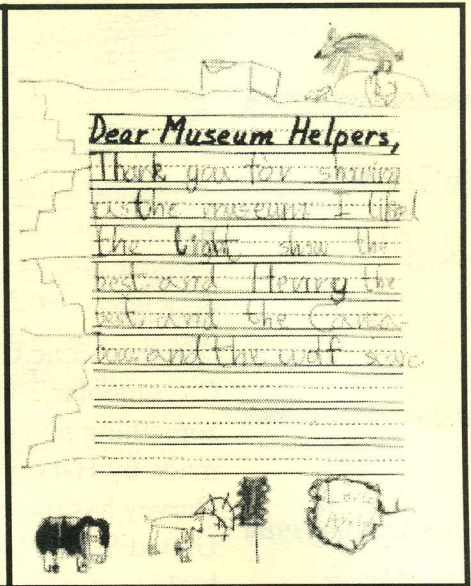 Dear Museum Helpers,
Thank you for showing
us the museum I liked
the light show the
best and Henry the
best and the Caves
too and the wolf